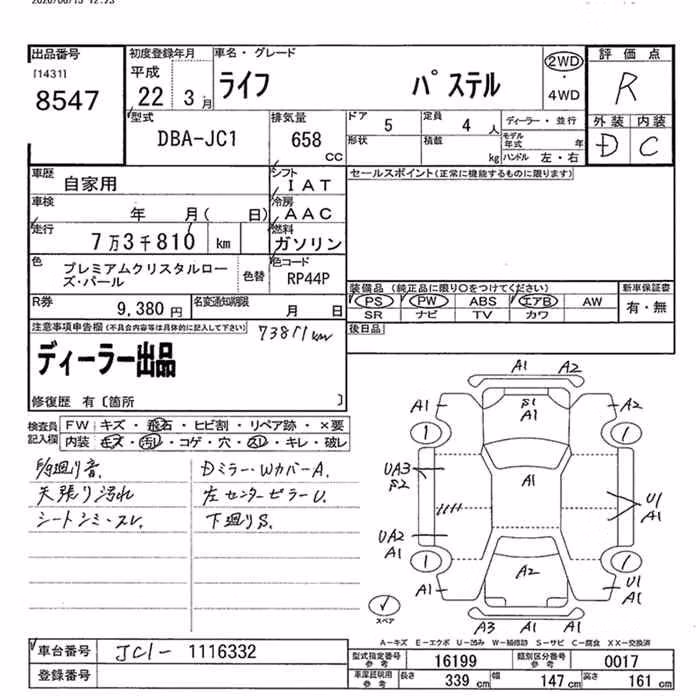 出品番号 初度登録年月 車名・グレード 評価点
[1431] 平成 ライフ パステル 2WD
8547 22 3月 ・ 4WD R
型式 排気量 ドア 5 定員 4 人 ディーラー・並行 外装 内装
DBA-JC1 658 cc 形状 積載 kg モデル年式 年 D C
ハンドル 左・右
車歴 自家用 シフト IAT セールスポイント(正常に機能するものに限ります)
車検 年 月( 日) 冷房 AAC
走行 7万3千810 km 燃料 ガソリン
色 プレミアムクリスタルロー
ズ・パール 色替 色コード RP44P
装備品 (純正品に限り○をつけてください) 新車保証書
PS PW ABS エアB AW 有・無
SR ナビ TV カワ
R券 9,380円 名変通知期限 月 日
後日品
注意事項申告欄(不具合内容等は具体的に記入して下さい) 73811km
ディーラー出品
修復歴 有〔箇所 〕
検査員 FW キズ・飛石・ヒビ割・リペア跡・×要
記入欄 内装 キズ・汚れ・コゲ・穴・スレ・キレ・破レ
Dミラー・Wカバー A.
天張り汚れ 左センターピラーU.
シートシミ・スレ. 下廻りS.
A1 A2
A1 S1 A1 A2
1 1
UA3 S2 A1 U1 A1
UA2 A1
1 1
A1 A2 U1 A1
A3 A1 A1
スペア
A-キズ E-エクボ U-凹み W-補修跡 S-サビ C-腐食 XX-交換済
車台番号 JC1- 1116332 型式指定番号 参考 16199 類別区分番号 参考 0017
登録番号 車庫証明用 参考 長さ 339 cm 幅 147 cm 高さ 161 cm